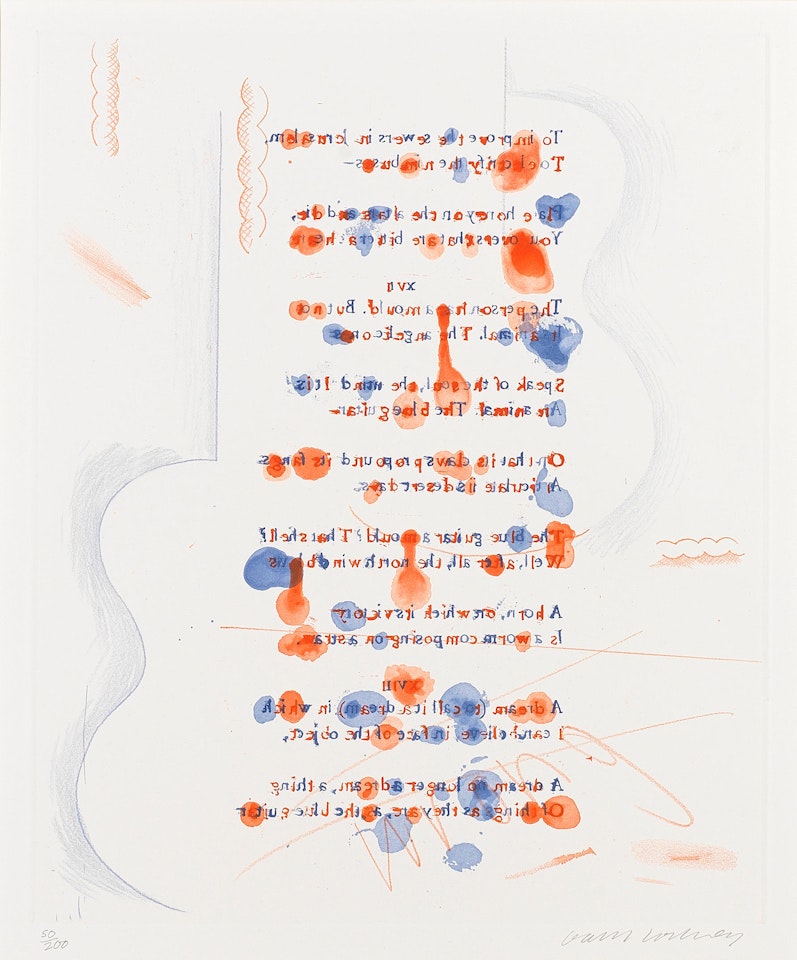 To improve the sewers in Jerusalem,
To electrify the nimbuses—
Place honey on the altars and die,
You lovers that are bitter at heart.
XVII
The person has a mould. But not
Its animal. The angelic ones
Speak of the soul, the mind. It is
An animal. The blue guitar—
On that its claws propound, its fangs
Articulate its desert days.
The blue guitar a mould? That shell?
Well, after all, the north wind blows
A horn, on which its victory
Is a worm composing on a straw.
XVIII
A dream (to call it a dream) in which
I can believe, in face of the object,
A dream no longer a dream, a thing
Of things as they are, as the blue guitar
50/200
David Hockney